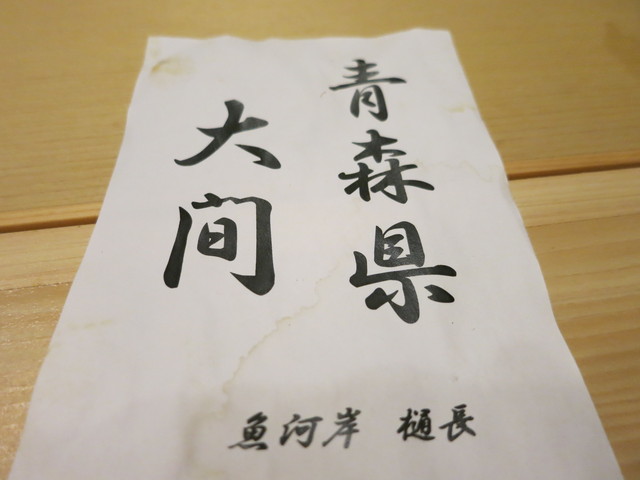 青森県
大間
魚河岸 樋長